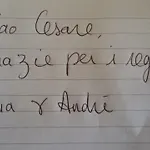 ao Cesare,
razie per i reg
André